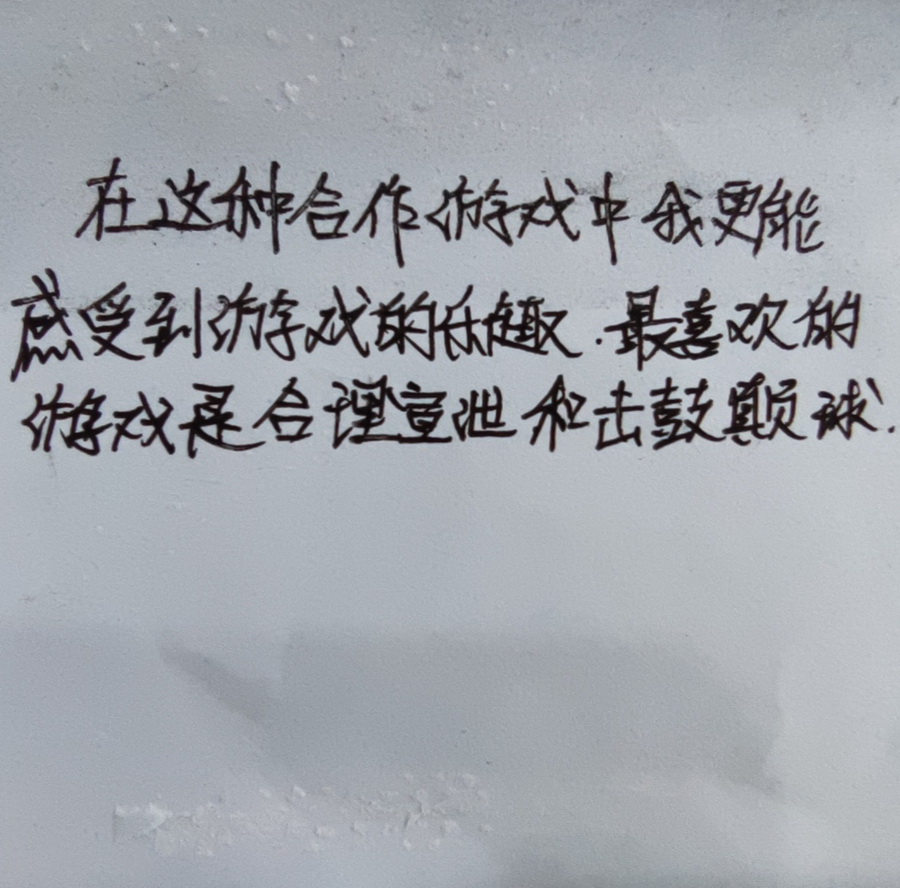 在这种合作游戏中我更能
感受到游戏的乐趣.最喜欢的
游戏是合理宣泄和击鼓颠球.